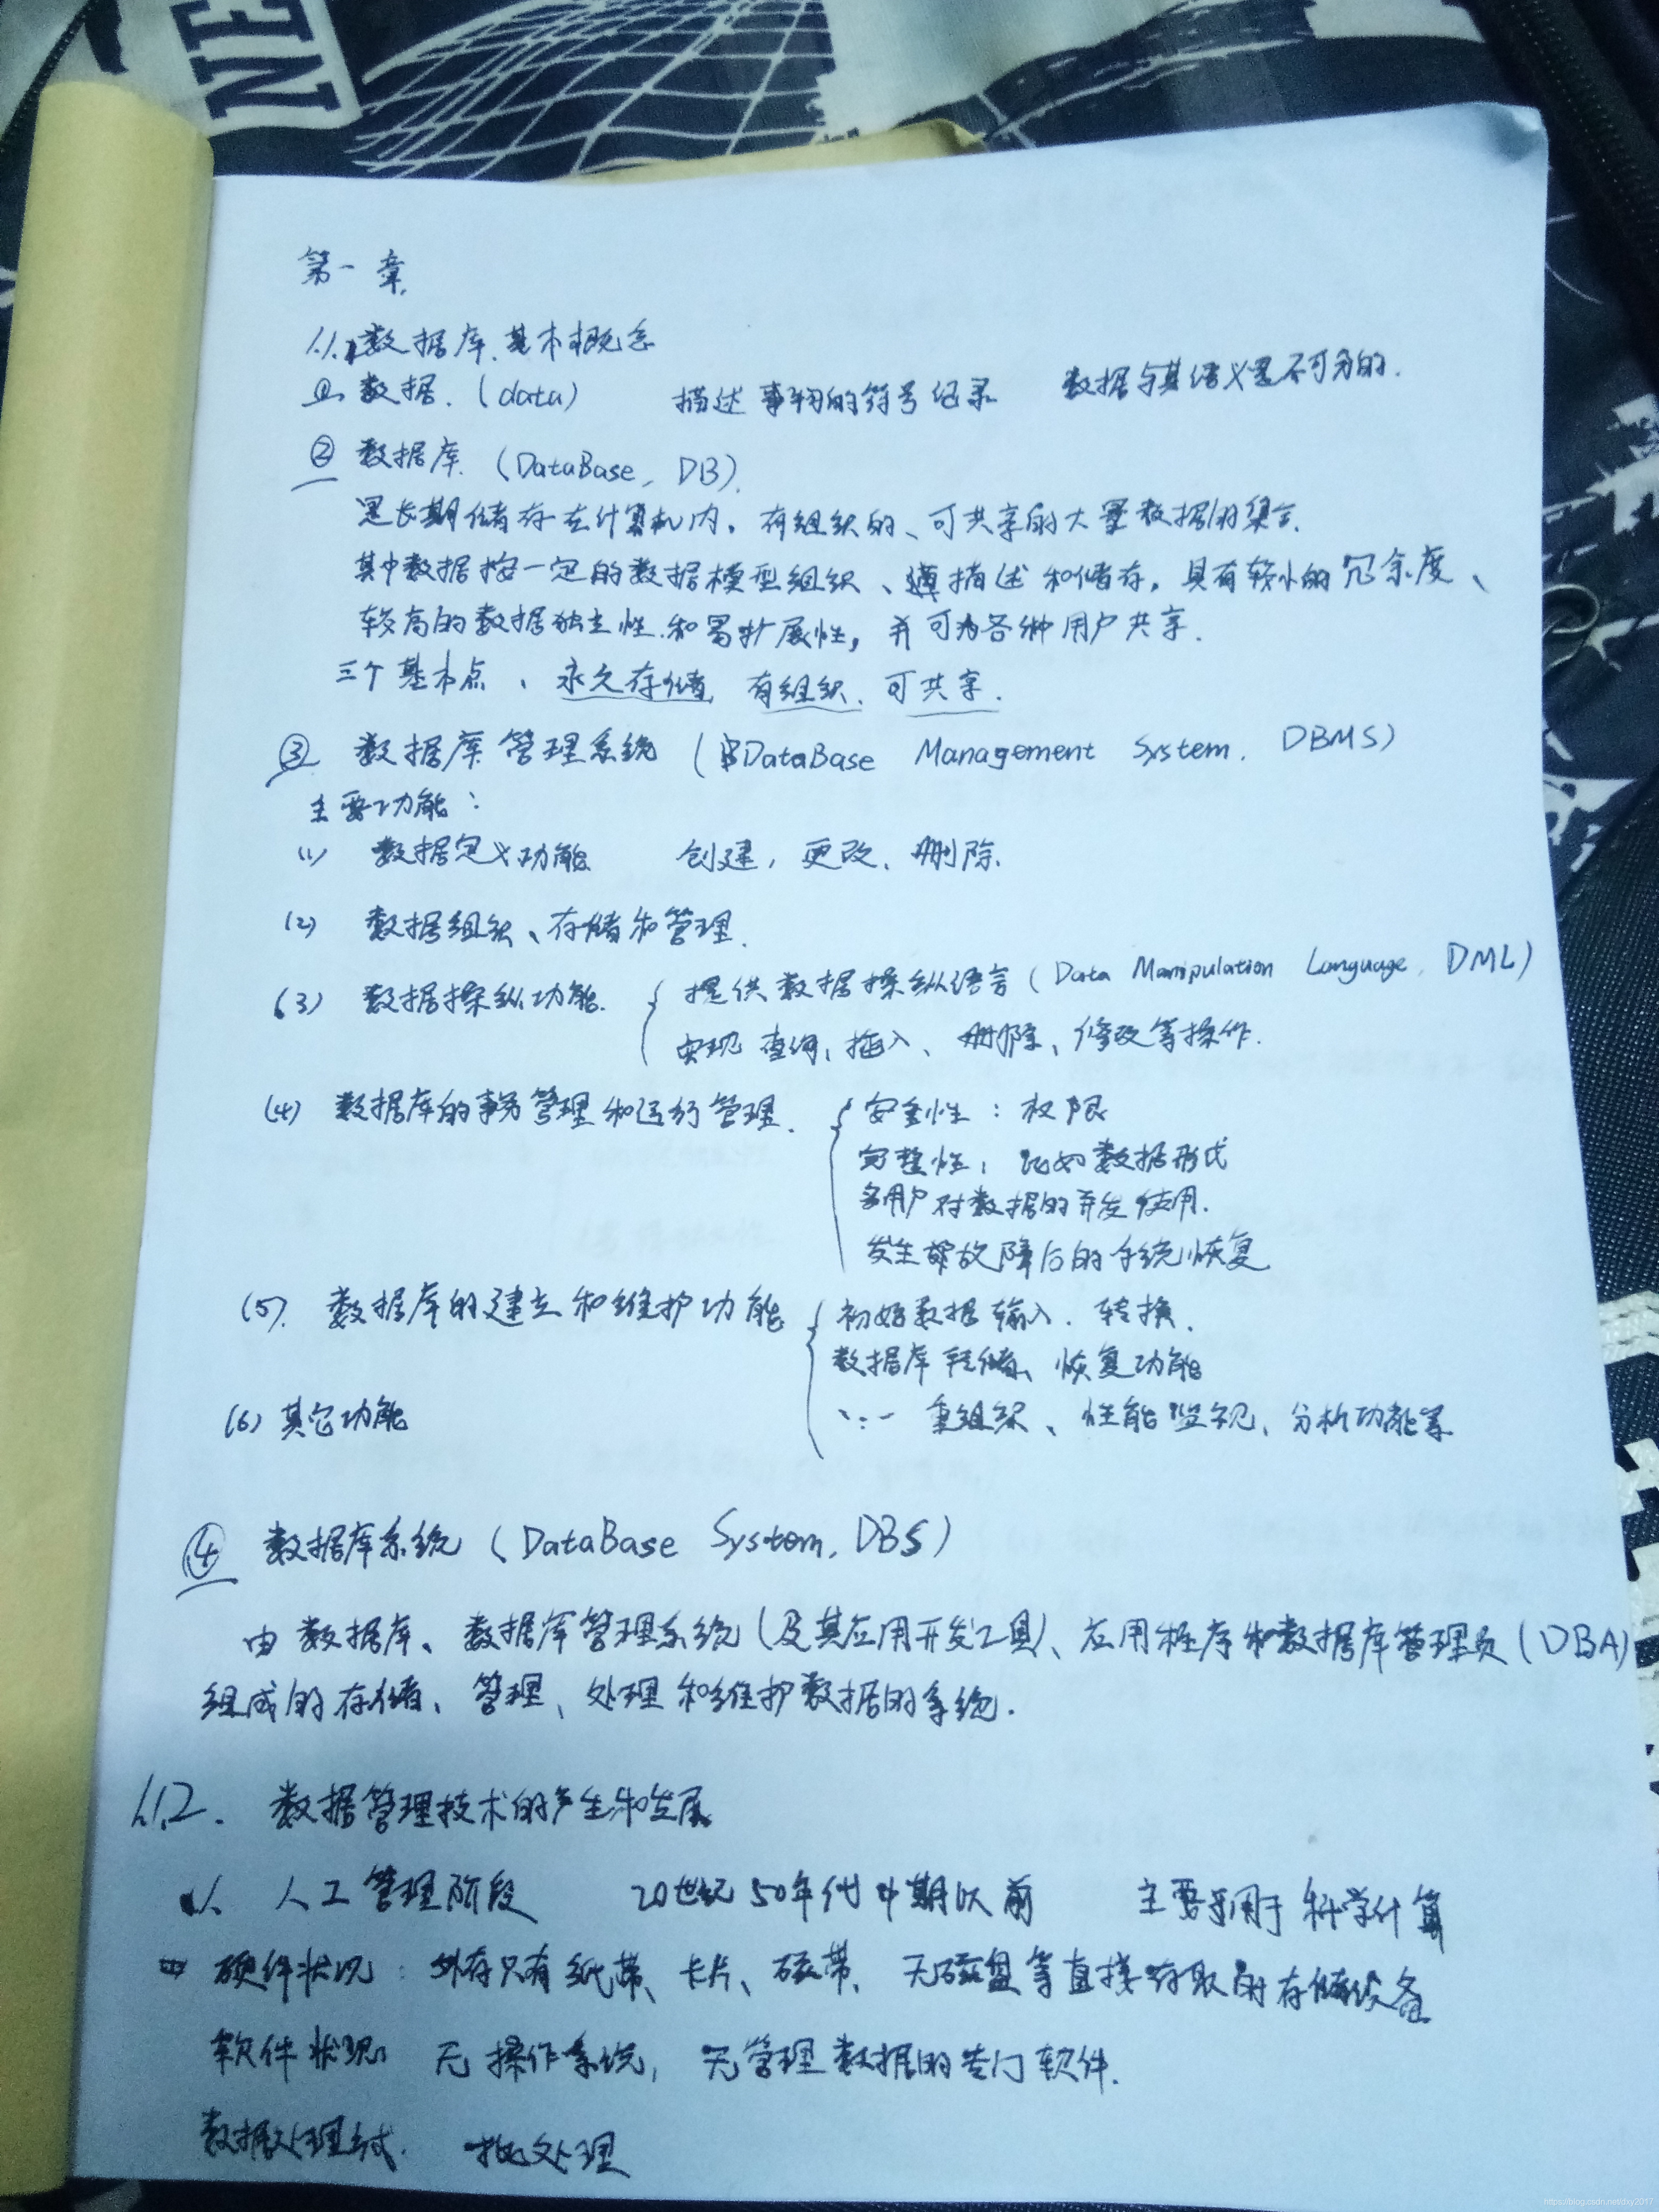 EN
第一章.
1.1.1数据库基本概念
①数据.(data) 描述事物的符号记录 数据与其语义是不可分的.
② 数据库.(DataBase, DB).
是长期储存在计算机内,有组织的、可共享的大量数据的集合.
其中数据按一定的数据模型组织、描述和储存,具有较小的冗余度、
较高的数据独立性和易扩展性,并可为各种用户共享.
三个基本点、永久存储 有组织.可共享.
③ 数据库管理系统(DataBase Management System. DBMS)
主要功能:
(1) 数据定义功能 创建,更改、删除.
(2) 数据组织、存储和管理.
(3) 数据操纵功能. { 提供数据操纵语言(Data Manipulation Language, DML)
实现查询,插入、删除、修改等操作.
(4) 数据库的事务管理和运行管理. { 安全性:权限
完整性:比如数据形式
多用户对数据的并发使用.
发生故障后的系统恢复
(5). 数据库的建立和维护功能 { 初始数据输入.转换.
数据库转储、恢复功能
重组织、性能监视、分析功能等
(6) 其它功能
④ 数据库系统(DataBase System, DBS)
由数据库、数据库管理系统(及其应用开发工具)、应用程序和数据库管理员(DBA)
组成的存储、管理、处理和维护数据的系统.
1.1.2. 数据管理技术的产生和发展
1、人工管理阶段 20世纪50年代中期以前 主要用于科学计算
硬件状况:外存只有纸带、卡片、磁带,无磁盘等直接存取的存储设备
软件状况 无操作系统,无管理数据的专门软件.
数据处理方式. 批处理
https://blog.csdn.net/dxy2017